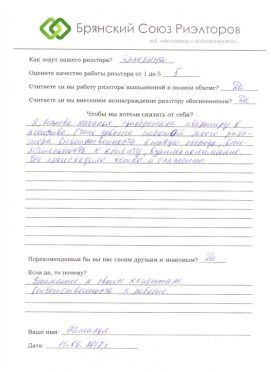 Брянский Союз Риэлторов
Как зовут вашего риэлтора? Екатерина
Оцените качество работы риэлтора от 1 до 5 5
Считаете ли вы работу риэлтора выполненной в полном объеме? Да
Считаете ли вы внесенное вознаграждение риэлтору обоснованным? Да
Что бы вы хотели сказать от себя?
Я, Наталья, приобретала квартиру в
Очень довольна работой моего риэл-
тора. Ответственность в первую очередь, вни-
мательность к клиенту, взаимопонимание.
Все происходило четко и слаженно.
Порекомендовали бы вы нас своим друзьям и знакомым? Да
Если да, то почему?
Внимание к своим клиентам.
Ответственность к работе.
Ваше имя: Наталья
Дата: 15.06.2017г